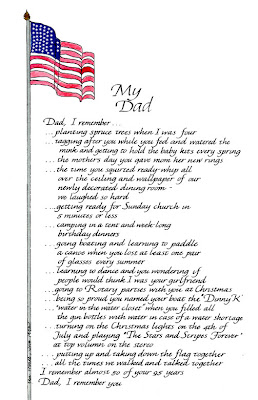 My
Dad
Dad, I remember...
...planting spruce trees when I was four
...tagging after you while you fed and watered the
mink and getting to hold the baby kits every spring
...the mothers day you gave mom her new rings
...the time you squirted ready-whip all
over the ceiling and wallpaper of our
newly decorated dining room -
we laughed so hard
...getting ready for Sunday church in
5 minutes or less
...camping in a tent and week long
birthday dinners
...going boating and learning to paddle
a canoe when you lost at least one pair
of glasses every summer
...learning to dance and you wondering if
people would think I was your girlfriend
...going to Rotary parties with you at Christmas
...being so proud you named your boat the "Dinny K"
...'water in the water closet' when you filled all
the gin bottles with water in case of a water shortage
...turning on the Christmas lights on the 4th of
July and playing "The Stars and Stripes Forever"
at top volume on the stereo
...putting up and taking down the flag together
...all the times we walked and talked together
I remember almost 50 of your 95 years
Dad, I remember you